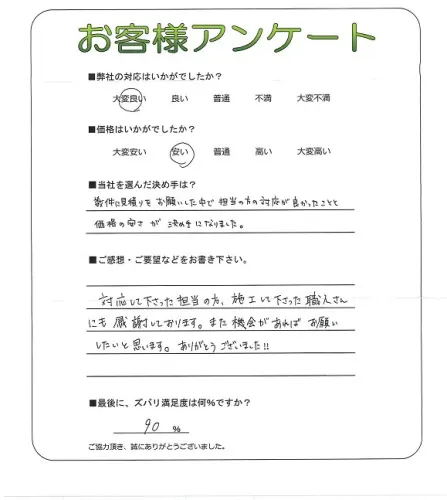 お客様アンケート
■弊社の対応はいかがでしたか？
大変良い 良い 普通 不満 大変不満
■価格はいかがでしたか？
大変安い 安い 普通 高い 大変高い
■当社を選んだ決め手は？
数件に見積りをお願いした中で担当の方の対応が良かったことと
価格の安さが決め手になりました。
■ご感想・ご要望などをお書き下さい。
対応して下さった担当の方、施工して下さった職人さん
にも感謝しております。また機会があればお願い
したいと思います。ありがとうございました!!
■最後に、ズバリ満足度は何%ですか？
90 %
ご協力頂き、誠にありがとうございました。